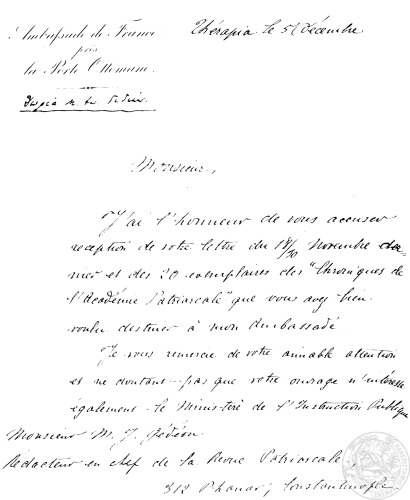 Ambassade de France
près
la Porte Ottomane.
Thérapia le 5 Décembre
Monsieur,
J'ai l'honneur de vous accuser
reception de votre lettre du 18/30 Novembre der-
nier et des 20 exemplaires des "Chroniques de
l'Académie Patriarcale" que vous avez bien
voulu destiner à mon Ambassade
Je vous remercie de votre aimable attention
et ne doutant pas que votre ouvrage n'intéresse
également le Ministère de l'Instruction Publique
Monsieur M. J. Gédéon
Rédacteur en chef de la Revue Patriarcale,
312 Phanar, Constantinople.